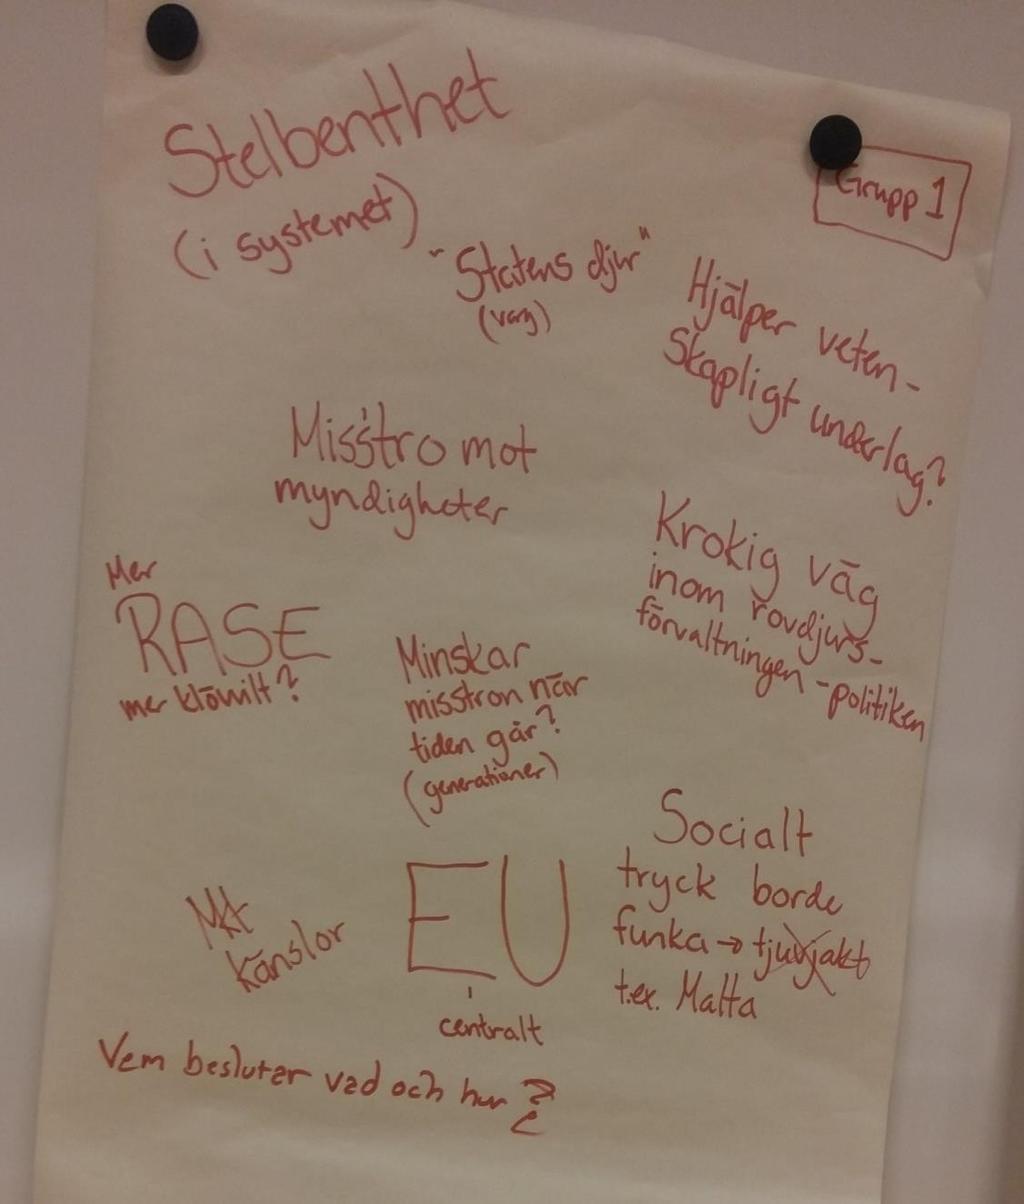 Stelbenthet
(i systemet)
Grupp 1
"Statens djur"
(varg)
Hjälper veten-
skapligt underlag?
Misstro mot
myndigheter
Krokig väg
inom rovdjurs-
förvaltningen -politiken
Mer
RASE
mer klövvilt?
Minskar
misstron när
tiden går?
(generationer)
Socialt
tryck borde
funka → tjuvjakt
t.ex. Malta
känslor
EU
centralt
Vem beslutar vad och hur?